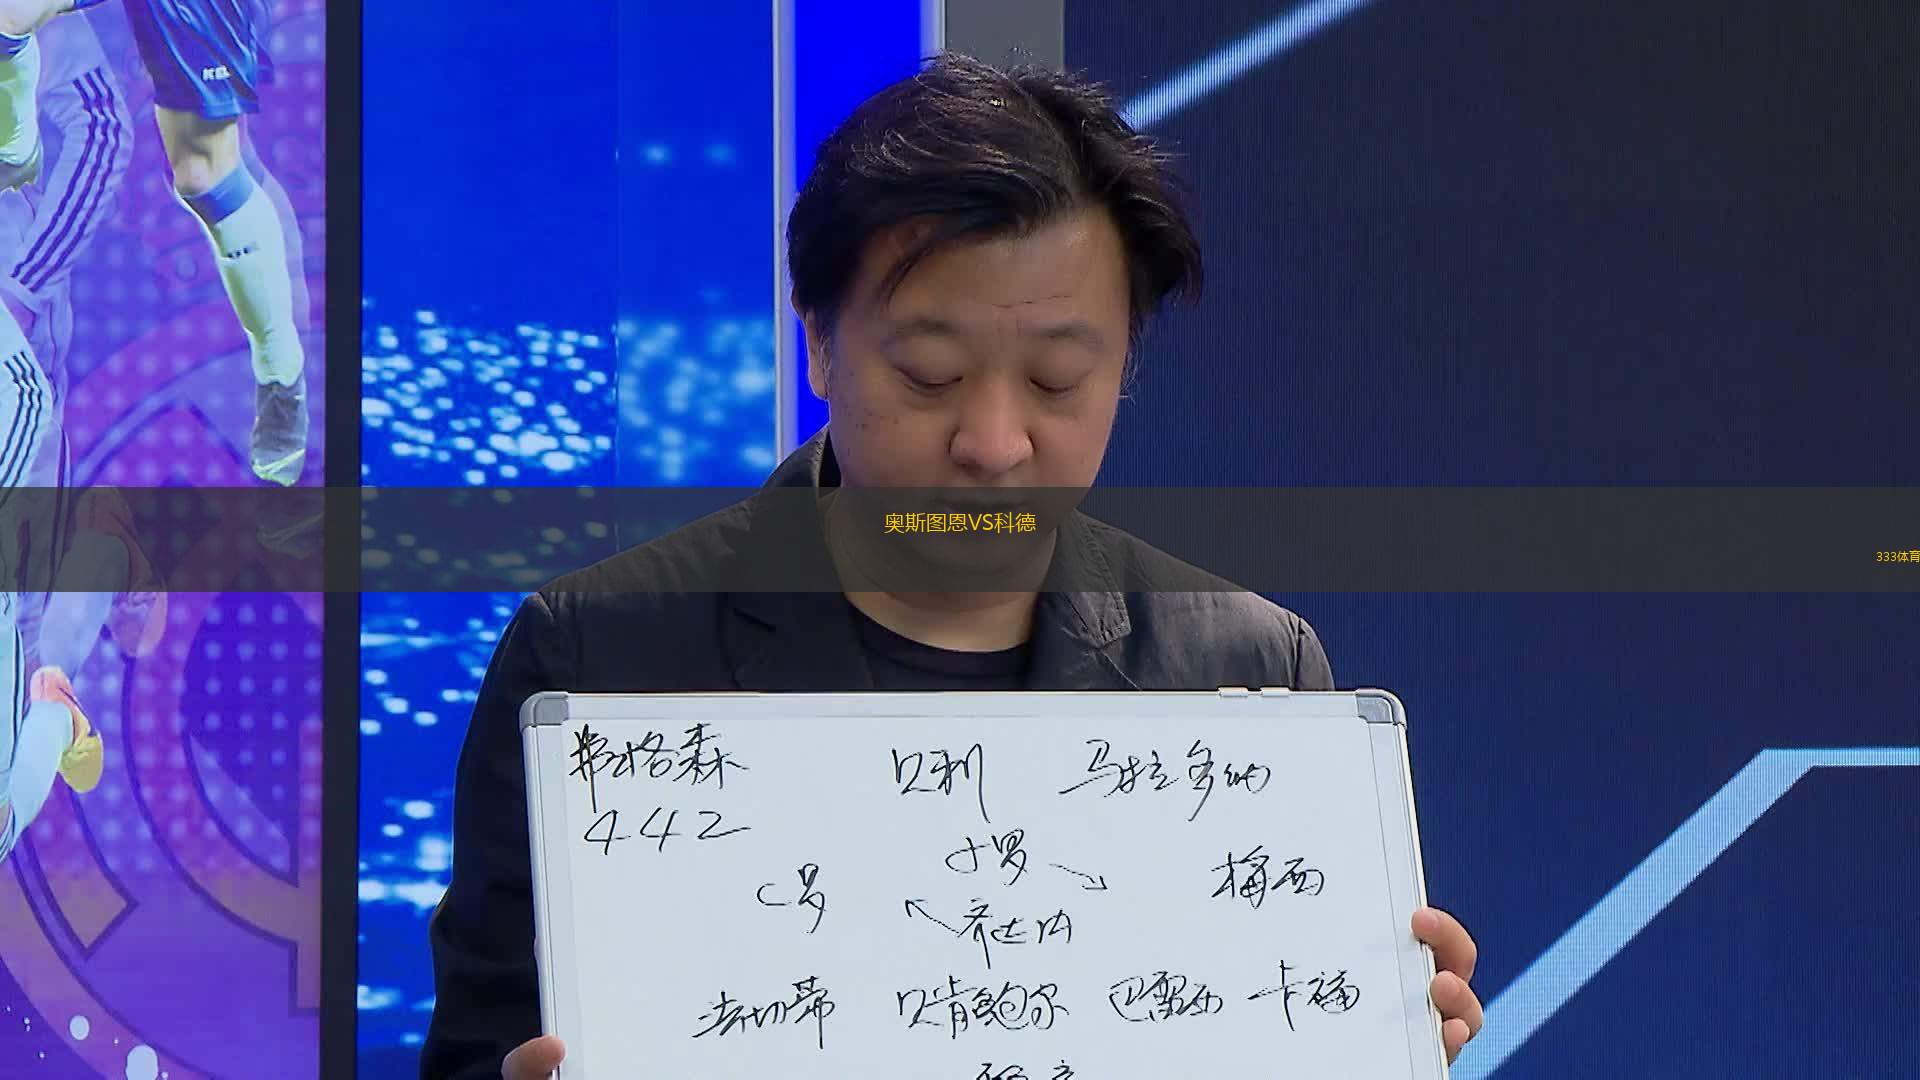 奥斯图恩VS科德
333体育
弗格森 贝利 马拉多纳
442
小罗
C罗 梅西
齐达内
法切蒂 贝肯鲍尔 巴雷西 卡福